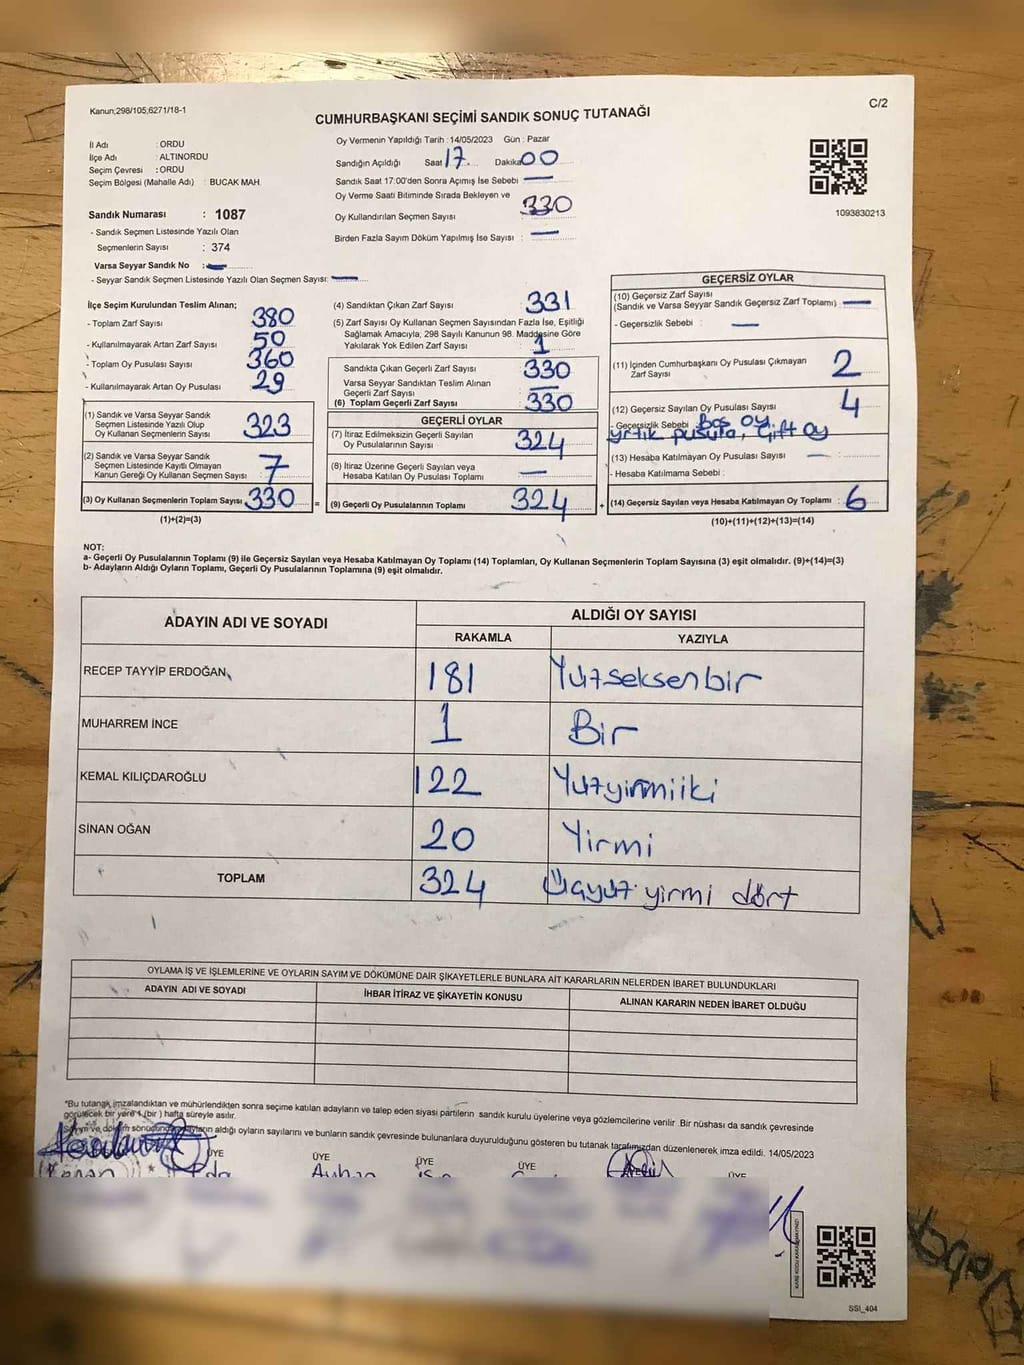 Kanun;298/105,6271/18-1
C/2
CUMHURBAŞKANI SEÇİMİ SANDIK SONUÇ TUTANAĞI
İl Adı : ORDU
İlçe Adı : ALTINORDU
Seçim Çevresi : ORDU
Seçim Bölgesi (Mahalle Adı) : BUCAK MAH.
Sandık Numarası : 1087
- Sandık Seçmen Listesinde Yazılı Olan
Seçmenlerin Sayısı : 374
Varsa Seyyar Sandık No :
- Seyyar Sandık Seçmen Listesinde Yazılı Olan Seçmen Sayısı:
Oy Vermenin Yapıldığı Tarih : 14/05/2023 Gün : Pazar
Sandığın Açıldığı Saat 17 Dakika 00
Sandık Saat 17:00'den Sonra Açımış İse Sebebi :
Oy Verme Saati Bitiminde Sırada Bekleyen ve
Oy Kullandırılan Seçmen Sayısı 330
Birden Fazla Sayım Döküm Yapılmış İse Sayısı :
1093830213
İlçe Seçim Kurulundan Teslim Alınan;
- Toplam Zarf Sayısı 380
- Kullanılmayarak Artan Zarf Sayısı 50
- Toplam Oy Pusulası Sayısı 360
- Kullanılmayarak Artan Oy Pusulası 29
(1) Sandık ve Varsa Seyyar Sandık
Seçmen Listesinde Yazılı Olup
Oy Kullanan Seçmenlerin Sayısı 323
(2) Sandık ve Varsa Seyyar Sandık
Seçmen Listesinde Kayıtlı Olmayan
Kanun Gereği Oy Kullanan Seçmen Sayısı 7
(3) Oy Kullanan Seçmenlerin Toplam Sayısı 330 =
(1)+(2)=(3)
(4) Sandıktan Çıkan Zarf Sayısı : 331
(5) Zarf Sayısı Oy Kullanan Seçmen Sayısından Fazla İse, Eşitliği
Sağlamak Amacıyla, 298 Sayılı Kanunun 98. Maddesine Göre
Yakılarak Yok Edilen Zarf Sayısı : 1
Sandıkta Çıkan Geçerli Zarf Sayısı 330
Varsa Seyyar Sandıktan Teslim Alınan
Geçerli Zarf Sayısı
(6) Toplam Geçerli Zarf Sayısı 330
GEÇERLİ OYLAR
(7) İtiraz Edilmeksizin Geçerli Sayılan
Oy Pusulalarının Sayısı 324
(8) İtiraz Üzerine Geçerli Sayılan veya
Hesaba Katılan Oy Pusulası Toplamı
(9) Geçerli Oy Pusulalarının Toplamı 324 +
GEÇERSİZ OYLAR
(10) Geçersiz Zarf Sayısı
(Sandık ve Varsa Seyyar Sandık Geçersiz Zarf Toplamı) :
- Geçersizlik Sebebi :
(11) İçinden Cumhurbaşkanı Oy Pusulası Çıkmayan
Zarf Sayısı : 2
(12) Geçersiz Sayılan Oy Pusulası Sayısı : 4
- Geçersizlik Sebebi : Boş oy
yırtık pusula, Çift oy
(13) Hesaba Katılmayan Oy Pusulası Sayısı :
- Hesaba Katılmama Sebebi :
(14) Geçersiz Sayılan veya Hesaba Katılmayan Oy Toplamı : 6
(10)+(11)+(12)+(13)=(14)
NOT:
a- Geçerli Oy Pusulalarının Toplamı (9) ile Geçersiz Sayılan veya Hesaba Katılmayan Oy Toplamı (14) Toplamları, Oy Kullanan Seçmenlerin Toplam Sayısına (3) eşit olmalıdır. (9)+(14)=(3)
b- Adayların Aldığı Oyların Toplamı, Geçerli Oy Pusulalarının Toplamına (9) eşit olmalıdır.
ADAYIN ADI VE SOYADI ALDIĞI OY SAYISI
RAKAMLA YAZIYLA
RECEP TAYYİP ERDOĞAN 181 Yüzseksenbir
MUHARREM İNCE 1 Bir
KEMAL KILIÇDAROĞLU 122 Yüzyirmiiki
SİNAN OĞAN 20 Yirmi
TOPLAM 324 Üçyüz yirmi dört
OYLAMA İŞ VE İŞLEMLERİNE VE OYLARIN SAYIM VE DÖKÜMÜNE DAİR ŞİKAYETLERLE BUNLARA AİT KARARLARIN NELERDEN İBARET BULUNDUKLARI
ADAYIN ADI VE SOYADI İHBAR İTİRAZ VE ŞİKAYETİN KONUSU ALINAN KARARIN NEDEN İBARET OLDUĞU
*Bu tutanak imzalandıktan ve mühürlendikten sonra seçime katılan adayların ve talep eden siyasi partilerin sandık kurulu üyelerine veya gözlemcilerine verilir .Bir nüshası da sandık çevresinde
görülecek bir yere 1 (bir ) hafta süreyle asılır.
aldığı oyların sayılarını ve bunların sandık çevresinde bulunanlara duyurulduğunu gösteren bu tutanak tarafımızdan düzenlenerek imza edildi. 14/05/2023
ÜYE ÜYE ÜYE ÜYE ÜYE
SSI_404